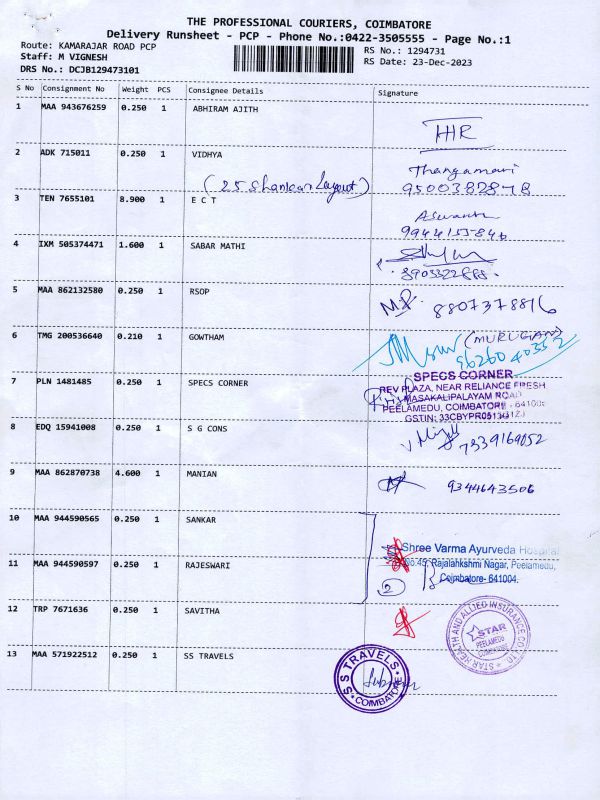 THE PROFESSIONAL COURIERS, COIMBATORE
Delivery Runsheet - PCP - Phone No.:0422-3505555 - Page No.:1
Route: KAMARAJAR ROAD PCP
RS No.: 1294731
Staff: M VIGNESH
RS Date: 23-Dec-2023
DRS No.: DCJB129473101
S No Consignment No Weight PCS Consignee Details Signature
1 MAA 943676259 0.250 1 ABHIRAM AJITH
HR
2 ADK 715011 0.250 1 VIDHYA
Thangamari
(25 Shankar Layout) 9500382878
3 TEN 7655101 8.900 1 E C T
Aswanth
4 IXM 505374471 1.600 1 SABAR MATHI
5 MAA 862132580 0.250 1 RSOP
8807378816
6 TMG 200536640 0.210 1 GOWTHAM
(MURUGAN)
9626040352
7 PLN 1481485 0.250 1 SPECS CORNER
SPECS CORNER
REV PLAZA, NEAR RELIANCE FRESH
MASAKALIPALAYAM ROAD
PEELAMEDU, COIMBATORE - 641004
GSTIN: 33CBYPR0513G1ZJ
8 EDQ 15941008 0.250 1 S G CONS
7339169052
9 MAA 862870738 4.600 1 MANIAN
9344643506
10 MAA 944590565 0.250 1 SANKAR
Shree Varma Ayurveda Hospital
11 MAA 944590597 0.250 1 RAJESWARI
No.45, Rajalahkshmi Nagar, Peelamedu,
Coimbatore- 641004.
2
12 TRP 7671636 0.250 1 SAVITHA
STAR HEALTH AND ALLIED INSURANCE CO. LTD.
STAR
PEELAMEDU
COIMBATORE
13 MAA 571922512 0.250 1 SS TRAVELS
S S TRAVELS
COIMBATORE